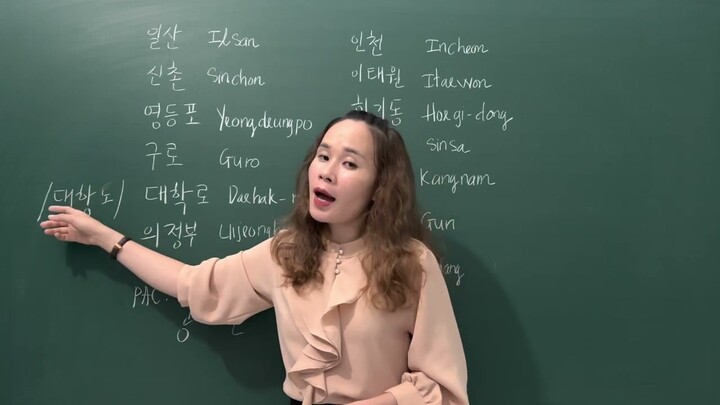 일산 Ilsan
신촌 Sinchon
영등포 Yeongdeungpo
구로 Guro
/대항노/ 대학로 Daehak-
의정부 Uijeong
PAC
인천 Incheon
이태원 Itaewon
회기동 Hoegi-dong
Sinsa
Kangnam
Gun
ang